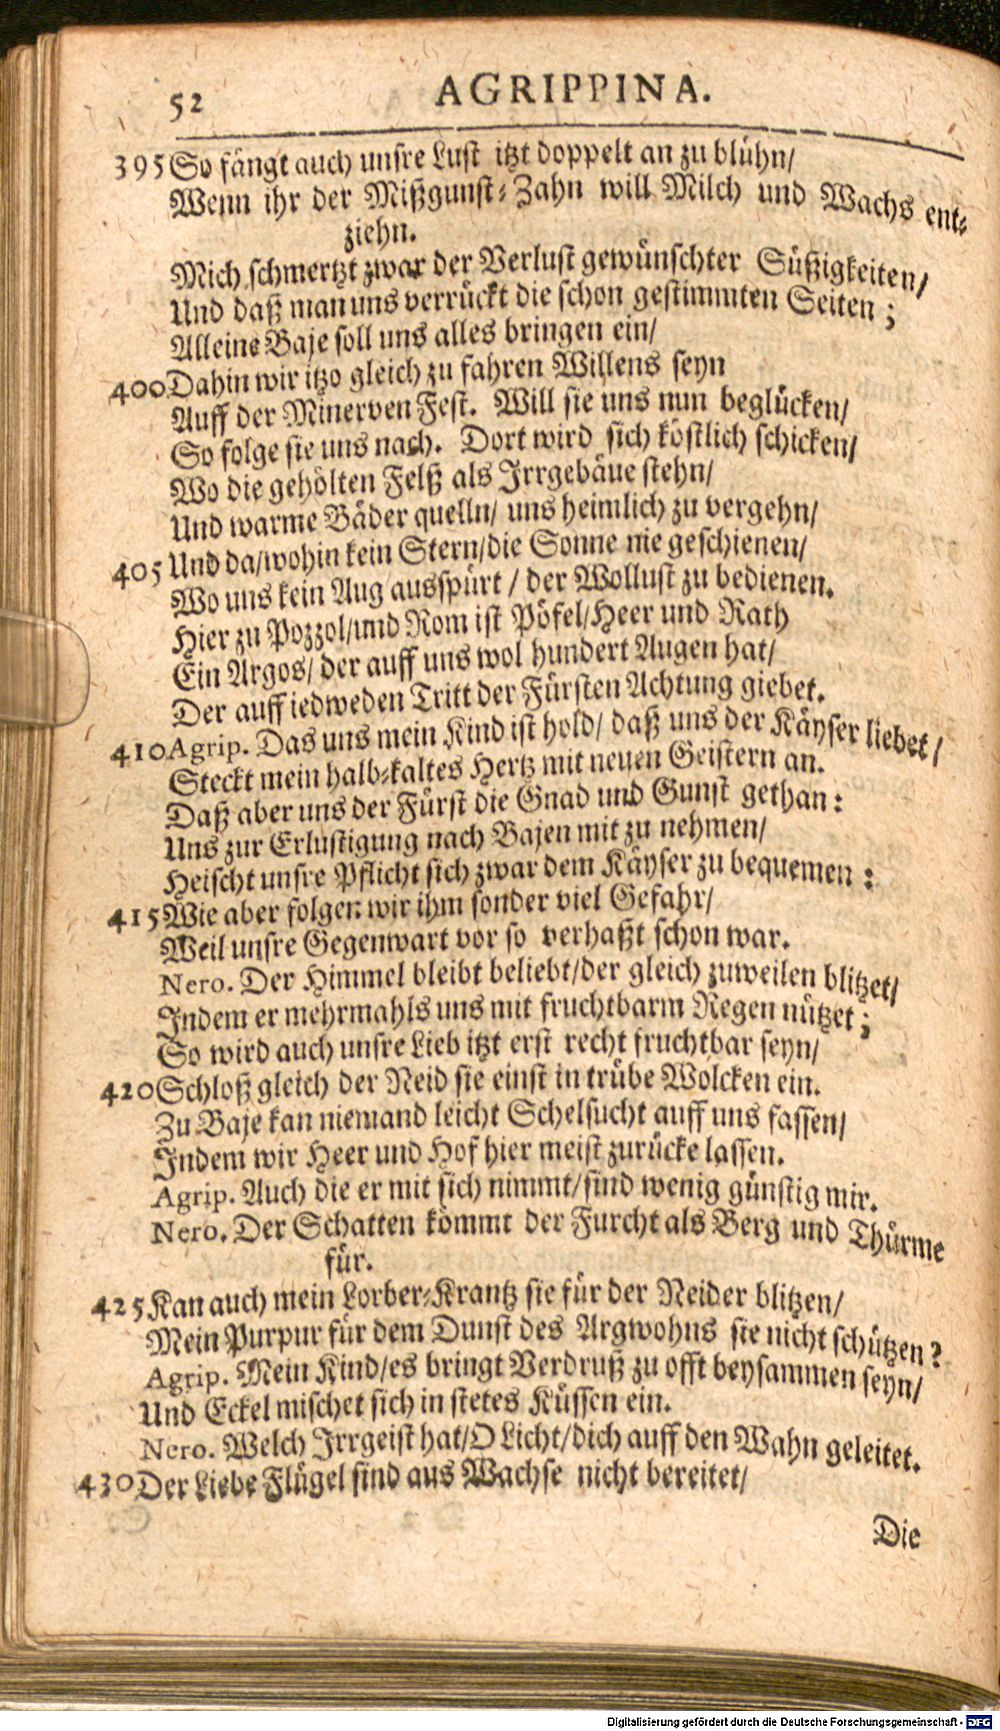 52 AGRIPPINA.
395 So fängt auch unsre Lust itzt doppelt an zu blühn/
Wenn ihr der Mißgunst-Zahn will Milch und Wachs ent-
ziehn.
Mich schmertzt zwar der Verlust gewünschter Süßigkeiten/
Und daß man uns verrückt die schon gestimmten Seiten;
Alleine Baje soll uns alles bringen ein/
400 Dahin wir itzo gleich zu fahren Willens seyn
Auff der Minerven Fest. Will sie uns nun beglücken/
So folge sie uns nach. Dort wird sich köstlich schicken/
Wo die gehölten Felß als Irrgebäue stehn/
Und warme Bäder quelln/ uns heimlich zu vergehn/
405 Und da/wohin kein Stern/die Sonne nie geschienen/
Wo uns kein Aug ausspürt / der Wollust zu bedienen.
Hier zu Pozzol/und Rom ist Pöfel/Heer und Rath
Ein Argos/ der auff uns wol hundert Augen hat/
Der auff iedweden Tritt der Fürsten Achtung giebet.
410 Agrip. Das uns mein Kind ist hold/ daß uns der Käyser liebet/
Steckt mein halb-kaltes Hertz mit neuen Geistern an.
Daß aber uns der Fürst die Gnad und Gunst gethan:
Uns zur Erlustigung nach Bajen mit zu nehmen/
Heischt unsre Pflicht sich zwar dem Käyser zu bequemen:
415 Wie aber folgen wir ihm sonder viel Gefahr/
Weil unsre Gegenwart vor so verhaßt schon war.
Nero. Der Himmel bleibt beliebt/der gleich zuweilen blitzet/
Indem er mehrmahls uns mit fruchtbarm Regen nützet;
So wird auch unsre Lieb itzt erst recht fruchtbar seyn/
420 Schloß gleich der Neid sie einst in trübe Wolcken ein.
Zu Baje kan niemand leicht Schelsucht auff uns fassen/
Indem wir Heer und Hof hier meist zurücke lassen.
Agrip. Auch die er mit sich nimmt/sind wenig günstig mir.
Nero. Der Schatten kömmt der Furcht als Berg und Thürme
für.
425 Kan auch mein Lorber-Krantz sie für der Neider blitzen/
Mein Purpur für dem Dunst des Argwohns sie nicht schützen?
Agrip. Mein Kind/es bringt Verdruß zu offt beysammen seyn/
Und Eckel mischet sich in stetes Küssen ein.
Nero. Welch Irrgeist hat/O Licht/dich auff den Wahn geleitet.
430 Der Liebe Flügel sind aus Wachse nicht bereitet/
Die
Digitalisierung gefördert durch die Deutsche Forschungsgemeinschaft - DFG